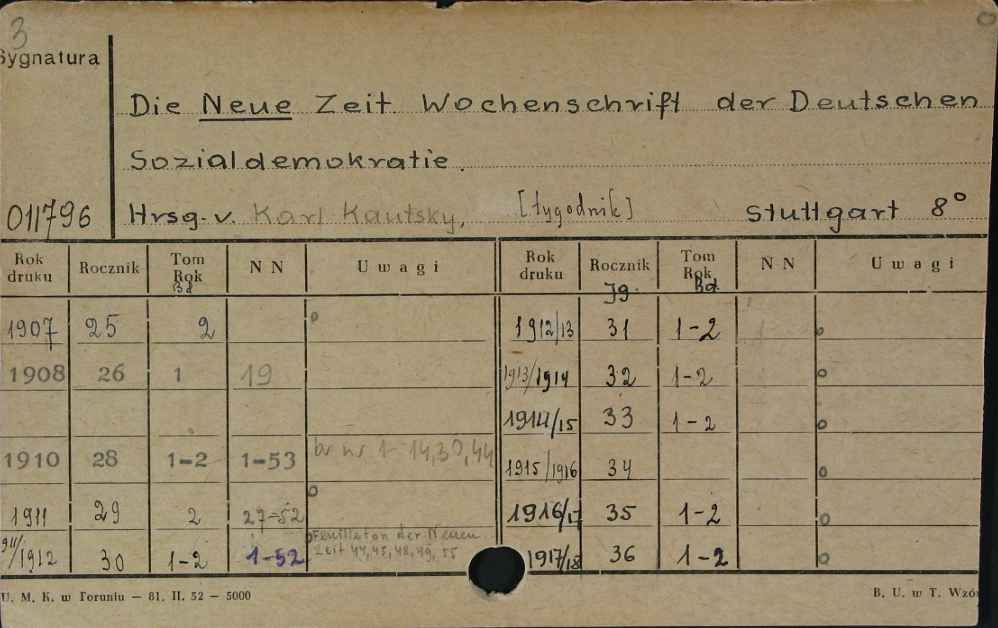 3
Sygnatura
Die Neue Zeit. Wochenschrift der Deutschen
Sozialdemokratie.
011796 Hrsg. v. Karl Kautsky, [tygodnik] Stuttgart 8°
Rok druku Rocznik Tom Rok Bd NN Uwagi Rok druku Rocznik Jg. Tom Rok Bd. NN Uwagi
1907 25 2 o 1912/13 31 1-2 o
1908 26 1 19 1913/1914 32 1-2 o
1914/15 33 1-2 o
1910 28 1-2 1-53 br nr 1-14,30,44 1915/1916 34 o
1911 29 2 27-52 o 1916/17 35 1-2 o
1911/1912 30 1-2 1-52 Feuilleton der Neuen Zeit 44,45,48,49,55 1917/18 36 1-2 o
U. M. K. w Toruniu — 81. II. 52 — 5000 B. U. w T. Wzór